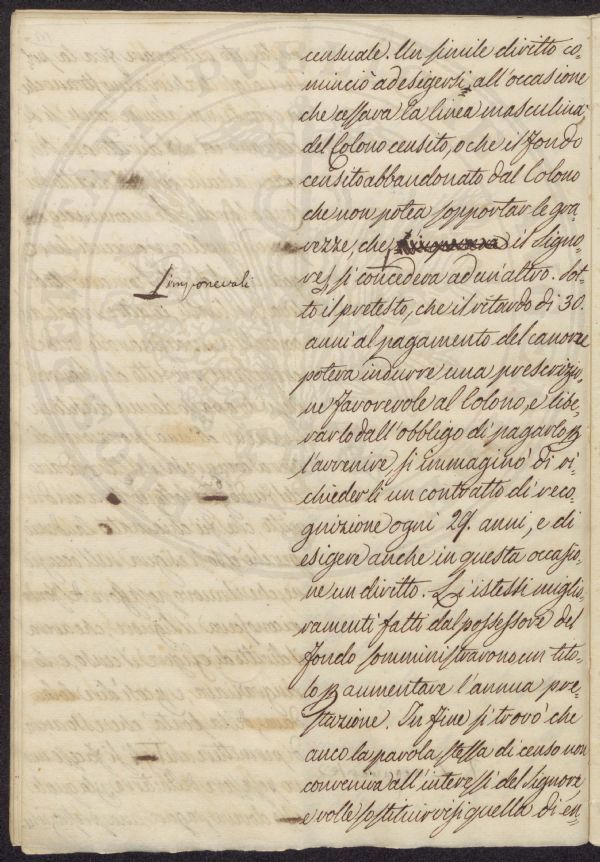 censuale. Un simile diritto co=
minciò ad esigersi, all'occasione
che cessava la linea masculina
del Colono censito, o che il fondo
censito abbandonato dal Colono
che non potea sopportar le gra=
vezze, che il Signo=
re si concedeva ad un'altro. Sot=
imponevali
to il pretesto, che il ritardo di 30.
anni al pagamento del canone
poteva indurre una prescrizio=
ne favorevole al Colono, e libe=
rarlo dall'obbligo di pagarlo p
l'avvenire si immaginò di ri=
chiederli un contratto di reco=
gnizione ogni 29. anni, e di
esigere anche in questa occasio=
ne un diritto. Li istessi miglio=
ramenti fatti dal possessore del
fondo somministravono un tito=
lo p aumentare l'annua pre=
stazione. In fine si trovò che
anco la parola stessa di censo non
conveniva all'interessi del Signore
e volle sostituirvisi quella di en=